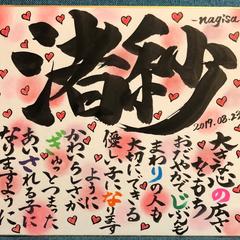 渚紗
-nagisa
2019.08.23
大きな心の広さ
をもち
まわりの人も
大切にできる
優しい子になります
ように
かわいらしさが
ぎゅっとつまった
あいされる子に
なりますように